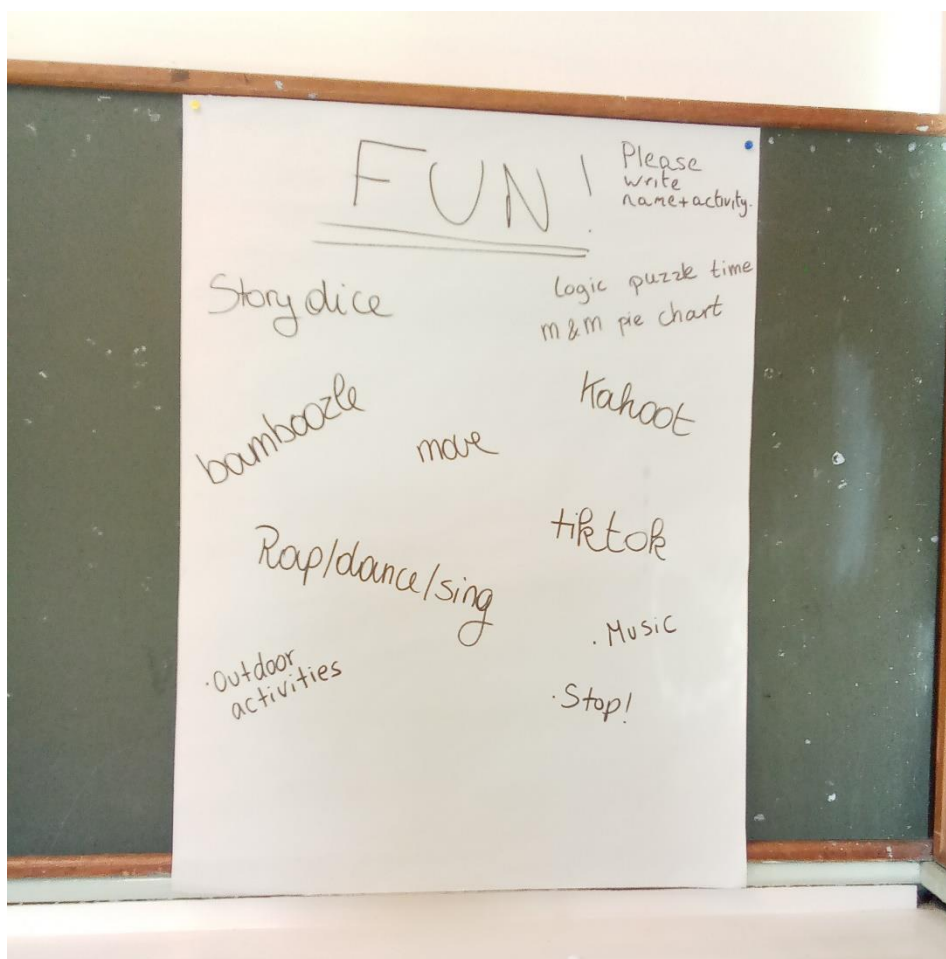 FUN!
Please
write
name+activity.
Story dice
Logic puzzle time
m&m pie chart
bamboozle
Kahoot
move
tiktok
Rap/dance/sing
. Music
. Outdoor
activities
. Stop!